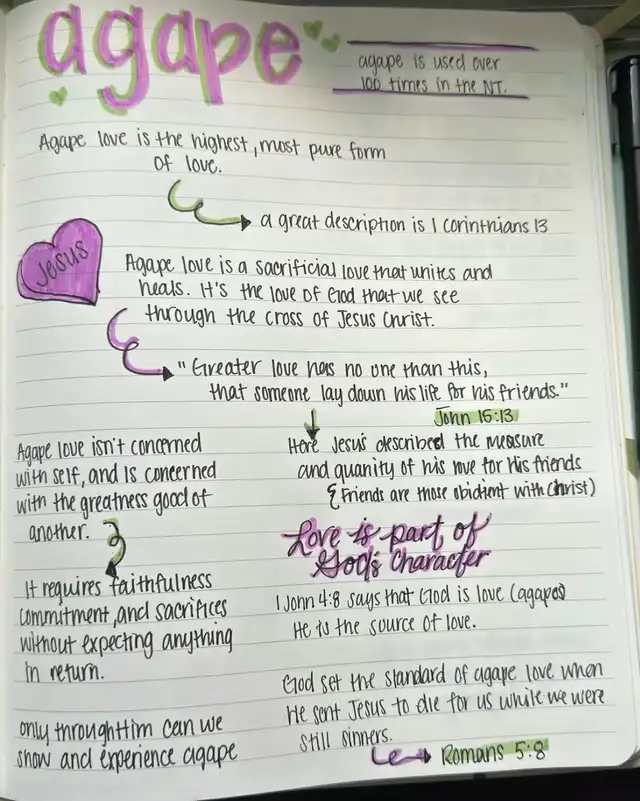 agape
agape is used over
100 times in the NT.
Agape love is the highest, most pure form
of love.
a great description is 1 Corinthians 13
Jesus
Agape love is a sacrificial love that unites and
heals. It's the love of God that we see
through the cross of Jesus Christ.
"Greater love has no one than this,
that someone lay down his life for his friends."
John 15:13
Here Jesus described the measure
and quanity of his love for His friends
(Friends are those obidient with Christ)
Agape love isn't concerned
with self, and is concerned
with the greatness good of
another.
It requires faithfulness
commitment, and sacrifices
without expecting anything
in return.
only through Him can we
show and experience agape
Love is part of
God's character
1 John 4:8 says that God is love (agape)
He is the source of love.
God set the standard of agape love when
He sent Jesus to die for us while we were
still sinners.
Romans 5:8